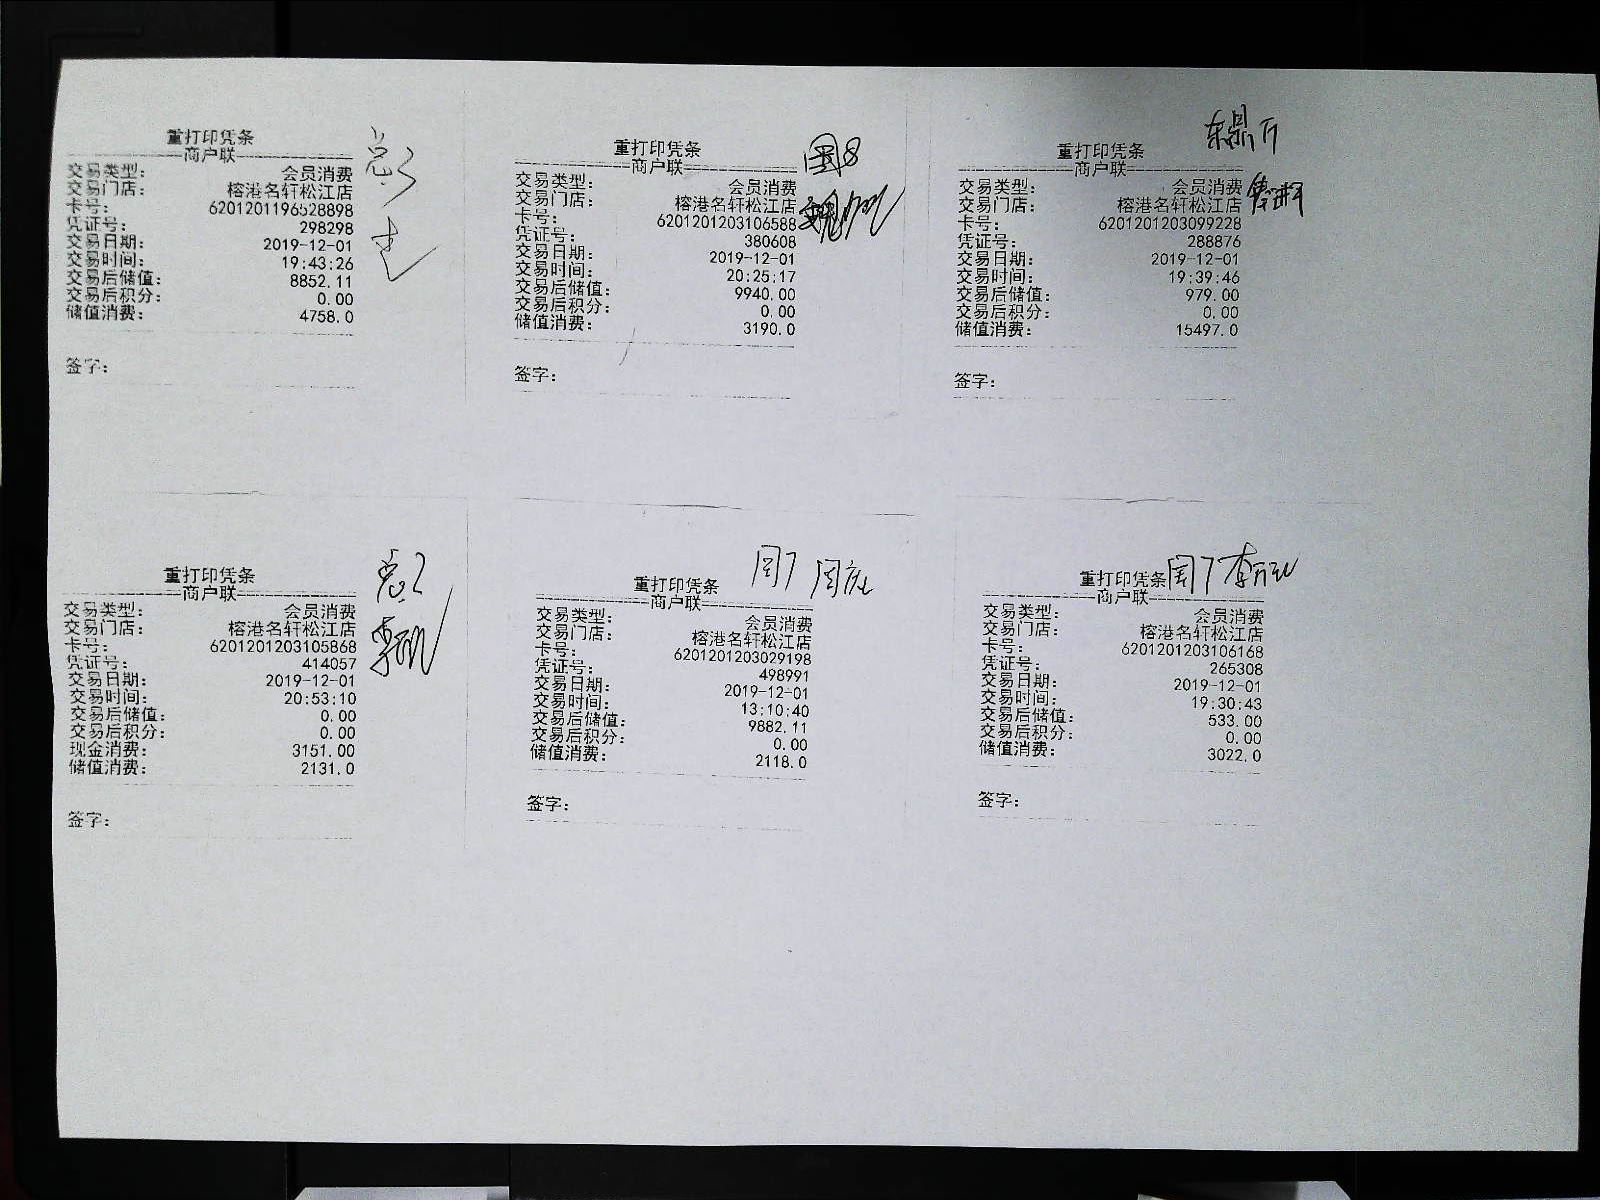 重打印凭条
商户联
交易类型: 会员消费
交易门店: 榕港名轩松江店
卡号: 6201201196528898
凭证号: 298298
交易日期: 2019-12-01
交易时间: 19:43:26
交易后储值: 8852.11
交易后积分: 0.00
储值消费: 4758.0
签字:
重打印凭条
商户联
国8
交易类型: 会员消费
交易门店: 榕港名轩松江店
卡号: 6201201203106588
凭证号: 380608
交易日期: 2019-12-01
交易时间: 20:25:17
交易后储值: 9940.00
交易后积分: 0.00
储值消费: 3190.0
签字:
重打印凭条
商户联
交易类型: 会员消费
交易门店: 榕港名轩松江店
卡号: 6201201203099228
凭证号: 288876
交易日期: 2019-12-01
交易时间: 19:39:46
交易后储值: 979.00
交易后积分: 0.00
储值消费: 15497.0
签字:
重打印凭条
商户联
交易类型: 会员消费
交易门店: 榕港名轩松江店
卡号: 6201201203105868
凭证号: 414057
交易日期: 2019-12-01
交易时间: 20:53:10
交易后储值: 0.00
交易后积分: 0.00
现金消费: 3151.00
储值消费: 2131.0
签字:
重打印凭条
商户联
交易类型: 会员消费
交易门店: 榕港名轩松江店
卡号: 6201201203029198
凭证号: 498991
交易日期: 2019-12-01
交易时间: 13:10:40
交易后储值: 9882.11
交易后积分: 0.00
储值消费: 2118.0
签字:
重打印凭条
商户联
交易类型: 会员消费
交易门店: 榕港名轩松江店
卡号: 6201201203106168
凭证号: 265308
交易日期: 2019-12-01
交易时间: 19:30:43
交易后储值: 533.00
交易后积分: 0.00
储值消费: 3022.0
签字: